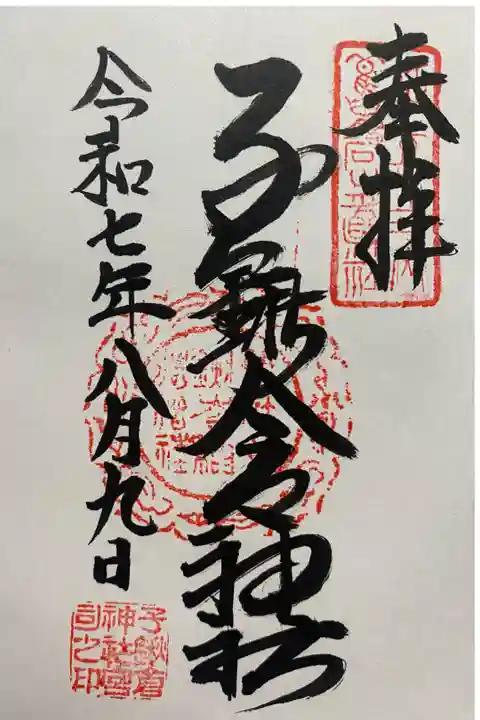 奉拝
子鍬倉神社
令和七年八月九日
子鍬倉
神社宮
司之印